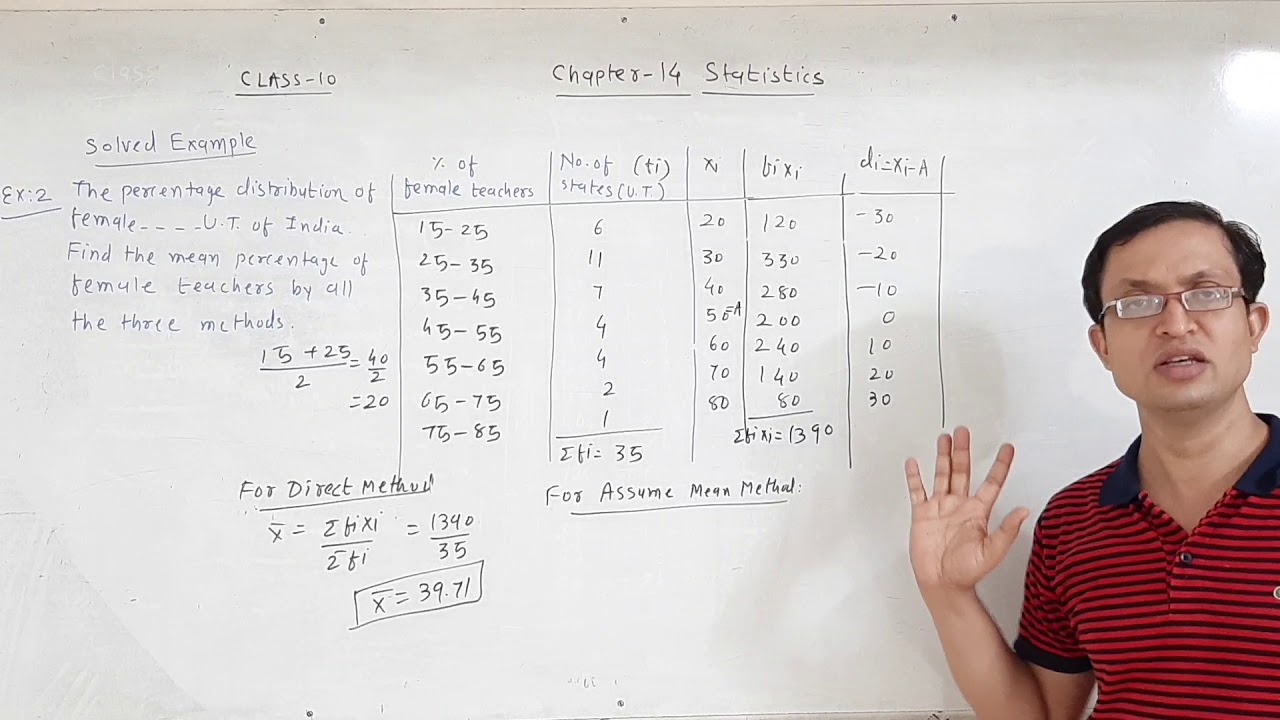 CLASS-10
Chapter-14 Statistics
Solved Example
Ex:2 The percentage distribution of
female----U.T. of India.
Find the mean percentage of
female teachers by all
the three methods.
15+25/2 = 40/2
=20
% of female teachers | No. of (fi) states (U.T.) | xi | fixi | di=xi-A
15-25 | 6 | 20 | 120 | -30
25-35 | 11 | 30 | 330 | -20
35-45 | 7 | 40 | 280 | -10
45-55 | 4 | 50=A | 200 | 0
55-65 | 4 | 60 | 240 | 10
65-75 | 2 | 70 | 140 | 20
75-85 | 1 | 80 | 80 | 30
Σfi= 35 | Σfixi=1390
For Direct Method
x̄ = Σfixi/Σfi = 1390/35
x̄ = 39.71
For Assume Mean Methal: